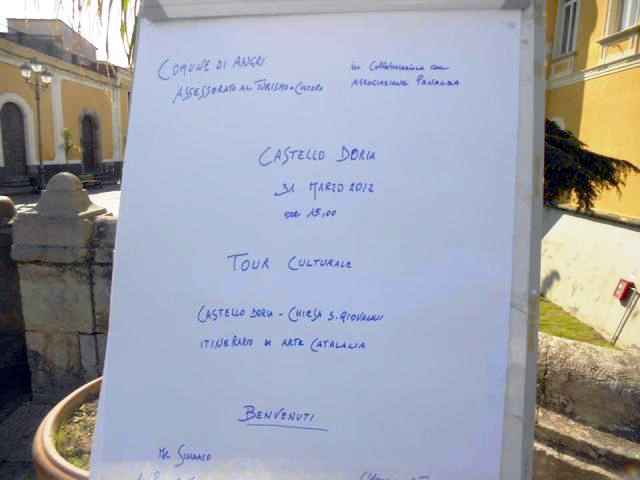 COMUNE DI ANGRI
ASSESSORATO AL TURISMO E CULTURA
in Collaborazione con
ASSOCIAZIONE PANACEA
CASTELLO DORIA
31 MARZO 2012
ore 15,00
TOUR CULTURALE
CASTELLO DORIA - CHIESA S. GIOVANNI
ITINERARIO DI ARTE CATALANA
BENVENUTI